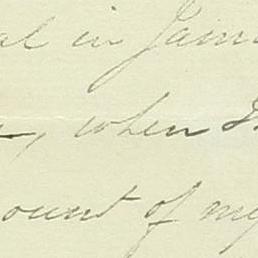 al in Jam
, when I
ount of my